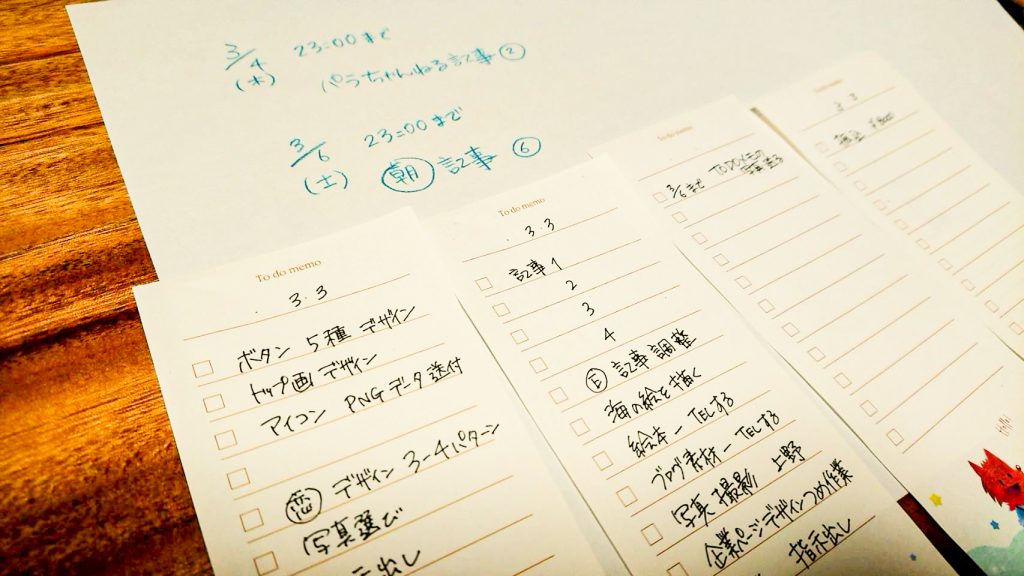 3/4 23:00まで
(木) パラちゃんねる記事②
3/6 23:00まで
(土) 朝 記事 ⑥
To do memo
3.3
ボタン 5種 デザイン
トップ画 デザイン
アイコン PNGデータ送付
恋 デザイン 3-4パターン
写真選び
出し
To do memo
3.3
記事1
2
3
4
E 記事 調整
海の絵を描く
絵本 - TELする
ブログ素材 - TELする
写真撮影 上野
企業ページデザインつめ作業
指示出し
To do memo
3/6まで TODO
To do memo
3.3